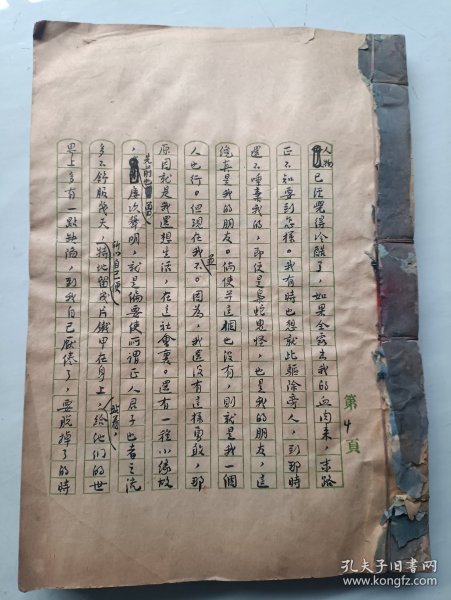 人物已經覺得冷酷了,如果全露出我的血肉來,末路
正不知要到怎樣。我有時也想就此驅除旁人,到那時
還不唾棄我的,即使是梟蛇鬼怪,也是我的朋友,這
纔真是我的朋友。倘使并這個也沒有,則就是我一個
人也行。但現在我並不。因為,我還沒有這樣勇敢,那
原因就是我還想生活,在這社會裏。還有一種小緣故
,先前也曾屢次聲明,就是偏要使所謂正人君子也者之流
多不舒服幾天,所以自己便特地留幾片鐵甲在身上,站着,給他們的世
界上多有一點缺陷,到我自己厭倦了,要脫掉了的時
第4頁
孔夫子旧书网
www.kongfz.com